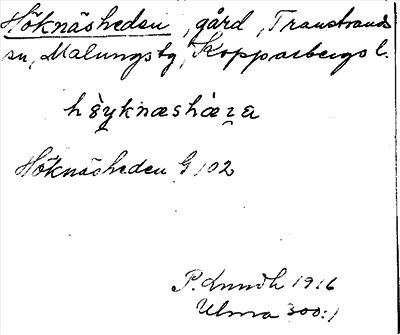 Höknäsheden, gård, Transtrands
sn, Malungs tg, Kopparbergs l.
höyknæshæza
Höknäsheden G 102
P. Lundh 1916
Ulma 300:1